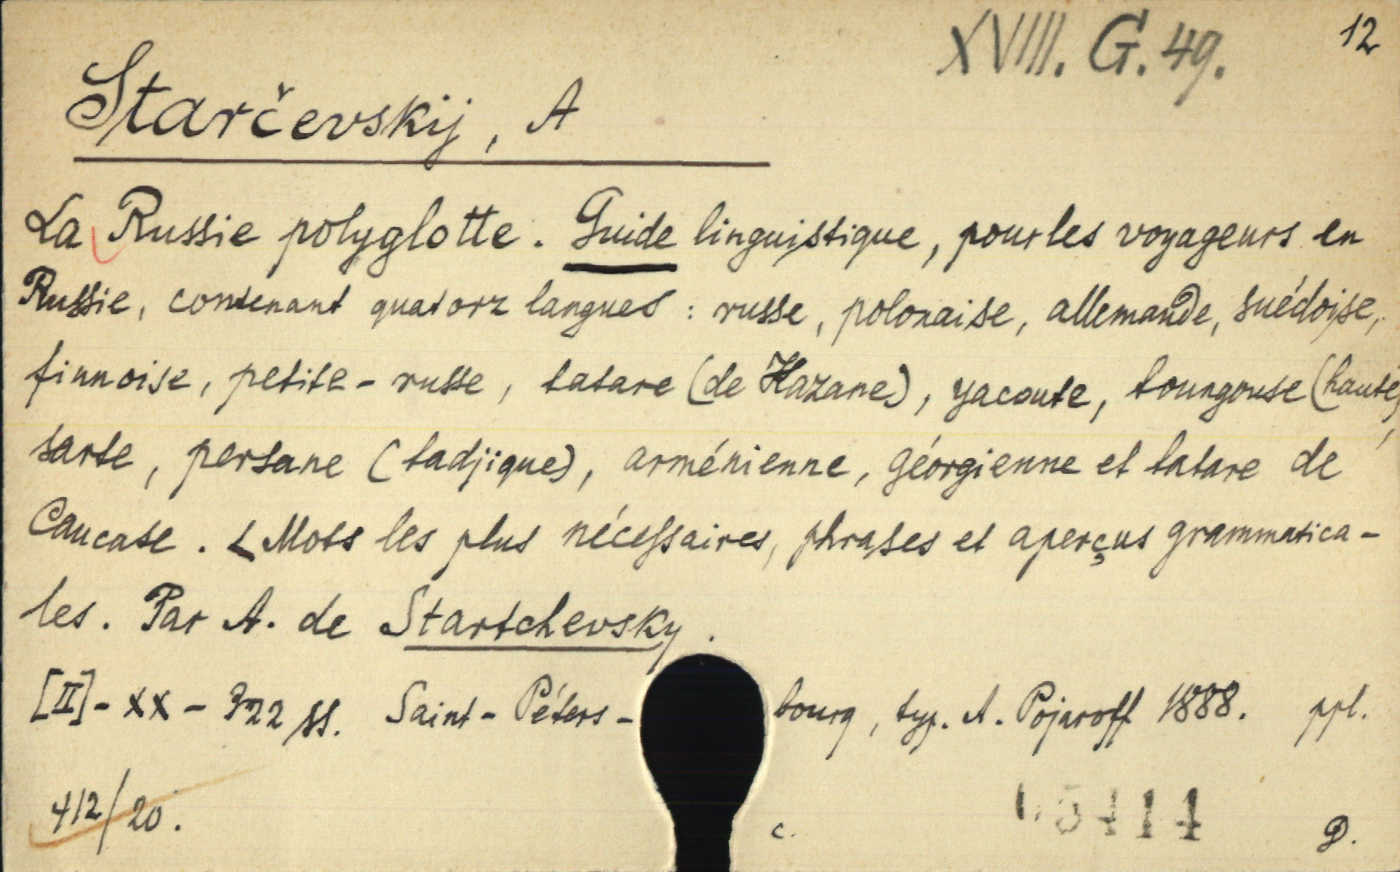 XVIII. G. 49.
12
Starčevskij, A
La Russie polyglotte. Guide linguistique, pour les voyageurs en
Russie, contenant quatorz langues : russe, polonaise, allemande, suédoise,
finnoise, petite-russe, tatare (de Kazane), yacoute, toungouse (haute),
sarte, persane (tadjique), arménienne, géorgienne et tatare de
Caucase. Mots les plus nécessaires, phrases et aperçus grammatica-
les. Par A. de Startchevsky.
[II]-XX-322 ss. Saint-Péters-bourg, typ. A. Pojaroff 1888. ppl.
412/20.
c.
5414
D.